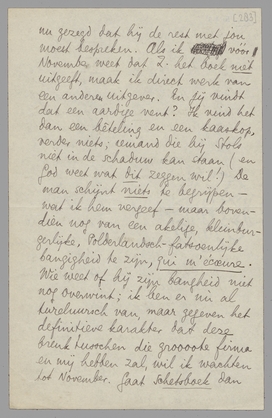 [285]
nu gezegd dat hij de rest met jou
moest bespreken. Als ik vóór
November weet dat Z. het boek niet
uitgeeft, maak ik direct werk van
een anderen uitgever. En jij vindt
dat een aardige vent? Ik vind het
dan een bêteling en een kaaskop,
verder niets; iemand die bij Stols
niet in de schaduw kan staan (en
God weet wat dit zeggen wil!) De
man schijnt niets te begrijpen –
wat ik hem vergeef – maar boven-
dien nog van een akelige, kleinbur-
gerlijke, Polderlandsch-fatsoenlijke
bangigheid te zijn, qui m'écoeure.
Wie weet of hij zijn bangheid niet
nog overwint; ik ben er nu al
tureluursch van, maar gegeven het
definitieve karakter dat deze
breuk tusschen die groooote firma
en mij hebben zal, wil ik wachten
tot November. Gaat Schetsboek dan